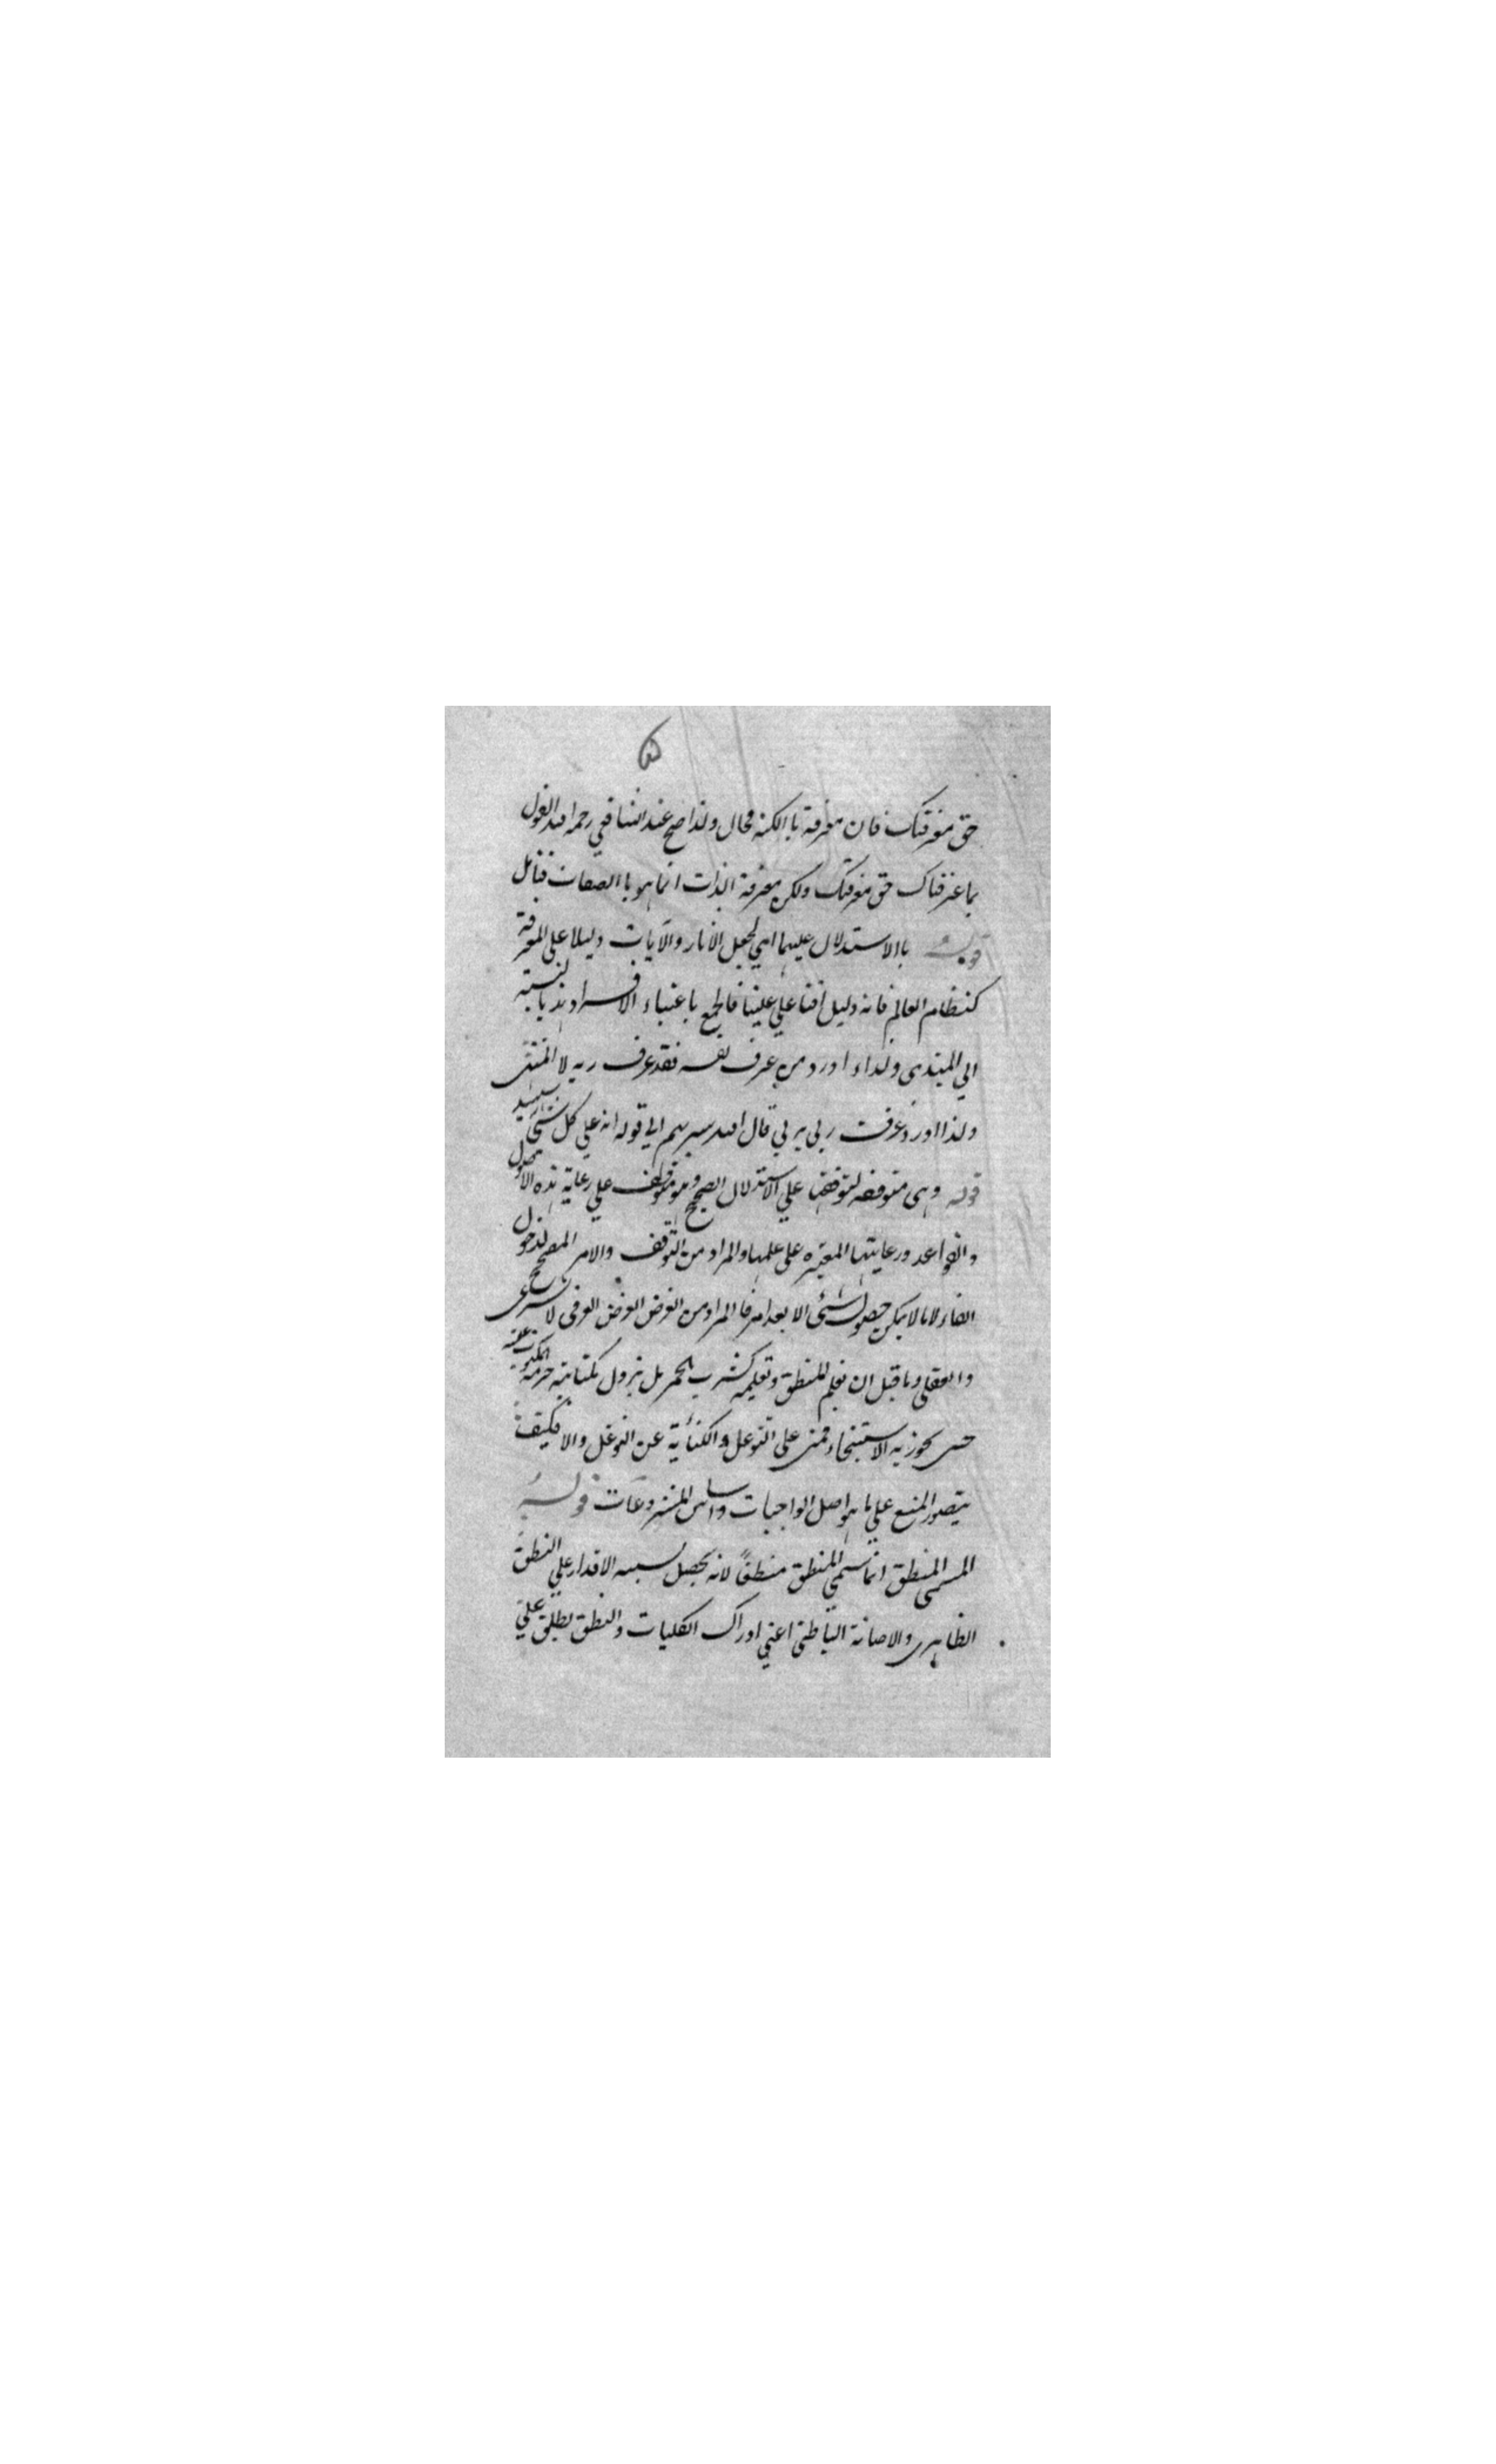 ۵
حق معرفتك فان معرفة باالكنه محال ولذا صح عند الشافي رحمه الله القول
بما عرفناك حق معرفتك ولكن معرفة الذات انما هو باالصفات فتأمل
قوله باالاستدلال عليهما اي لجعل الاثار والآيات دليلا على المعرفة
كنظام العالم فانه دليل علي فالجمع باعتباء الافراد هذا بالنسبة
الي المبتدى ولذا اورد من عرف نفسه فقد عرف ربه لا المنتهى
ولذا اورد عرفت ربي بربي قال الله سنريهم الي قوله انه علي كل شئ شهيد
قوله وهى متوقفه لتوقفها علي الاستدلال الصحيح وهو موقوف علي رعاية هذه الاصول
والقواعد ورعايتها المعتبره على علمها والمراد من التوقف والامر المصحح لدخول
الفاء لانا لا يمكن حصول شئ الا بعد امر فالمراد من الفرض الفرض العرفى لا الشرعى
والعقلي وما قيل ان تعلم المنطق وتعليمه كشرب الخمر بل يزول بكتابته حرمة المكتوب عنه
حتى يجوز به الاستنجاء فمبنى على التوغل والكناية عن التوغل والا فكيف
يتصور المنع علي ما هو اصل الواجبات واساس المشروعات قوله
المسمى المنطق انما سمي المنطق منطقا لانه يحصل بسببه الاقدار علي النطق
الظاهرى والاصابة الباطنى اعني ادراك الكليات والنطق يطلق علي